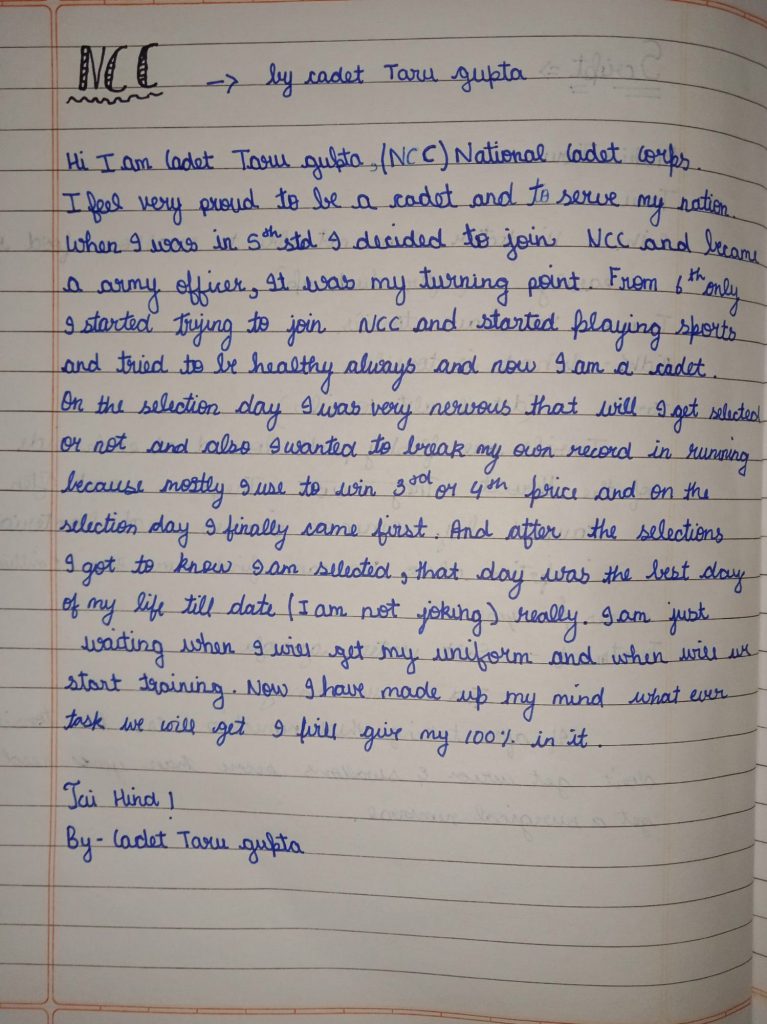 NCC → by cadet Taru gupta
Hi I am Cadet Taru gupta, (NCC) National Cadet Corps.
I feel very proud to be a cadet and to serve my nation.
When I was in 5th std I decided to join NCC and became
a army officer, It was my turning point. From 6th only
I started trying to join NCC and started playing sports
and tried to be healthy always and now I am a cadet.
On the selection day I was very nervous that will I get selected
or not and also I wanted to break my own record in running
because mostly I use to win 3rd or 4th price and on the
selection day I finally came first. And after the selections
I got to know I am selected, that day was the best day
of my life till date (I am not joking) really. I am just
waiting when I will get my uniform and when will we
start training. Now I have made up my mind what ever
task we will get I will give my 100% in it.
Jai Hind!
By- Cadet Taru gupta